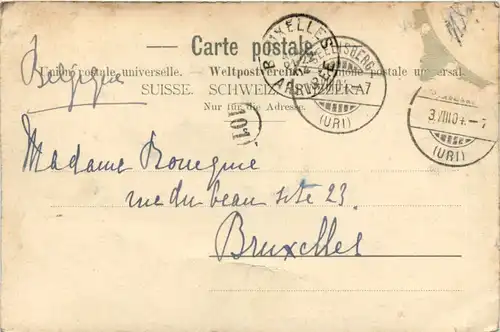 Carte postale.
Union postale universelle. Weltpostverein. Unione postale universale.
SUISSE. SCHWEIZ. SVIZZERA.
Nur für die Adresse.
Belgique
BRUXELLES
ARRIVEE
SEELISBERG
(URI)
3.VIII.04.-7
(URI)
101
Madame
rue du beau site 23.
Bruxelles